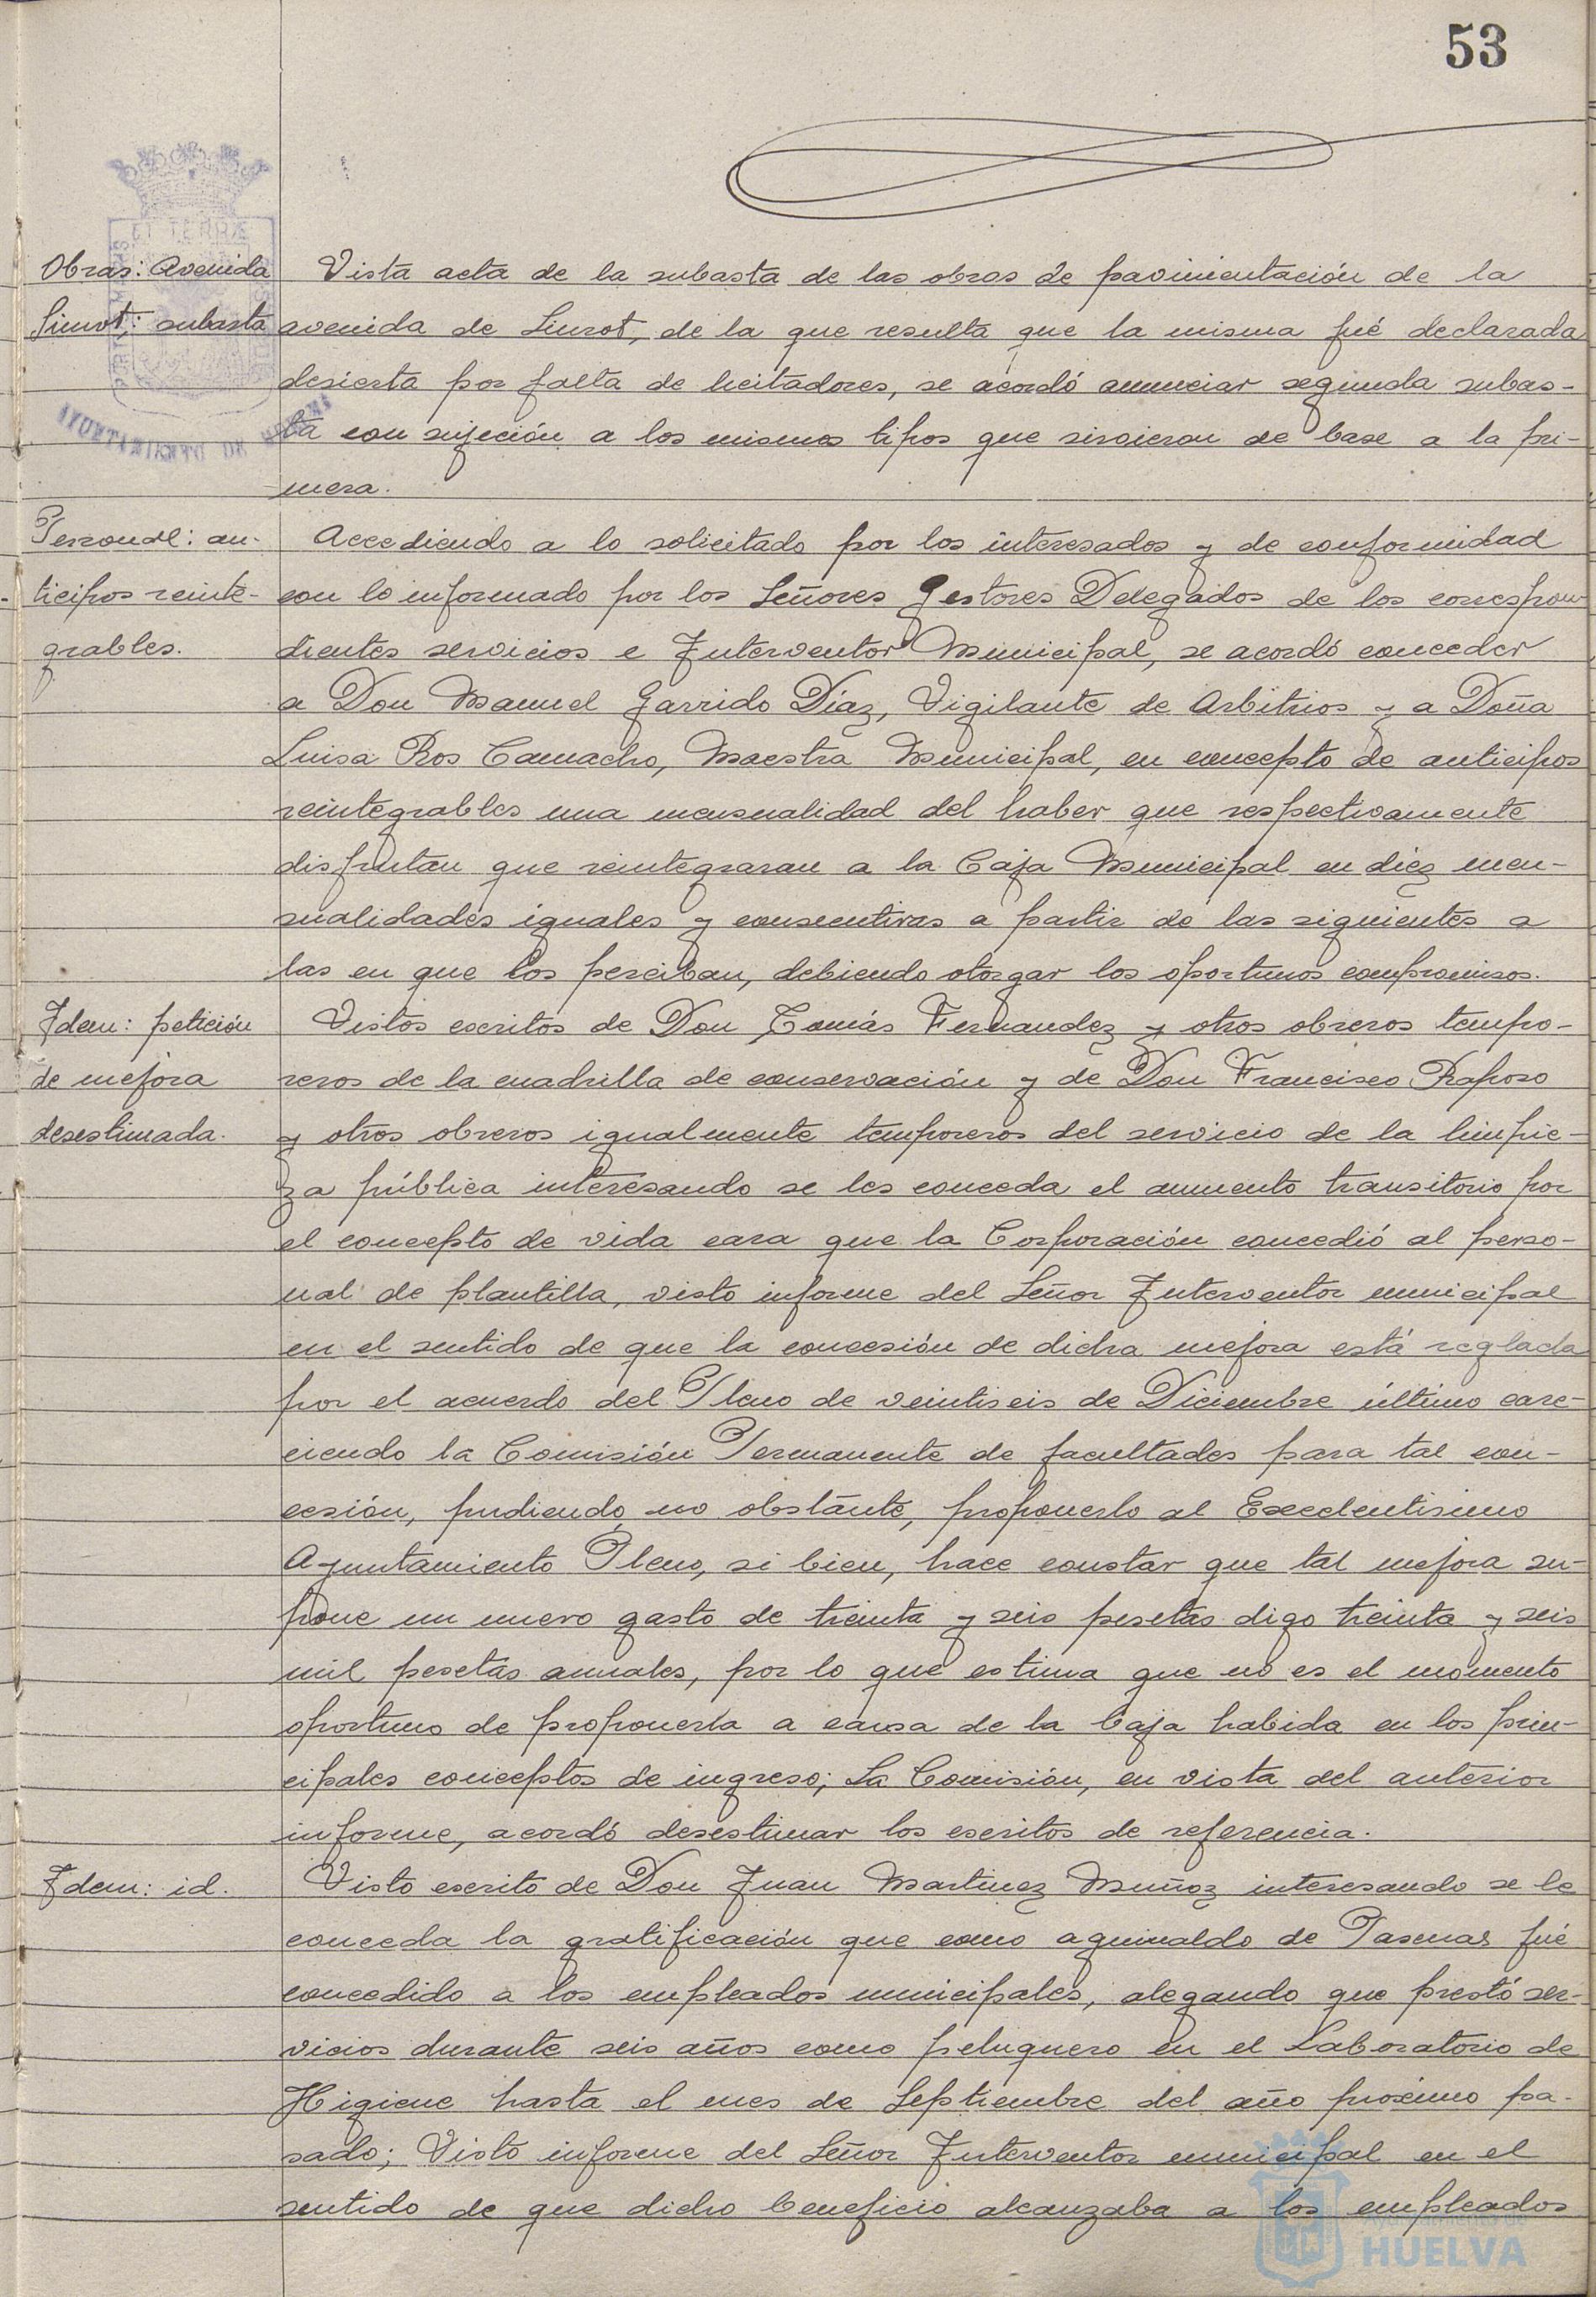 53
Obras: Avenida
Siurot; subasta
Vista acta de la subasta de las obras de pavimentación de la
avenida de Siurot, de la que resulta que la misma fué declarada
desierta por falta de licitadores, se acordó anunciar segunda subas-
ta con sujeción a los mismos tipos que sirvieron de base a la pri-
mera.
Personal: an-
ticipos reinte-
grables.
Accediendo a lo solicitado por los interesados y de conformidad
con lo informado por los Señores Gestores Delegados de los correspon-
dientes servicios e Interventor Municipal, se acordó conceder
a Don Manuel Garrido Díaz, Vigilante de Arbitrios y a Doña
Luisa Ros Camacho, Maestra Municipal, en concepto de anticipos
reintegrables una mensualidad del haber que respectivamente
disfrutan que reintegraran a la Caja Municipal en diez men-
sualidades iguales y consecutivas a partir de las siguientes a
las en que los perciban, debiendo otorgar los oportunos compromisos.
Idem: petición
de mejora
desestimada.
Vistos escritos de Don Tomás Fernandez y otros obreros tempo-
reros de la cuadrilla de conservación y de Don Francisco Raposo
y otros obreros igualmente temporeros del servicio de la limpie-
za pública interesando se les conceda el aumento transitorio por
el concepto de vida cara que la Corporación concedió al perso-
nal de plantilla, visto informe del Señor Interventor municipal
en el sentido de que la concesión de dicha mejora está reglada
por el acuerdo del Pleno de veintiseis de Diciembre último care-
ciendo la Comisión Permanente de facultades para tal con-
cesión, pudiendo no obstante, proponerlo al Excelentisimo
Ayuntamiento Pleno, si bien, hace constar que tal mejora su-
pone un nuevo gasto de treinta y seis pesetas digo treinta y seis
mil pesetas anuales, por lo que estima que no es el momento
oportuno de proponerla a causa de la baja habida en los prin-
cipales conceptos de ingreso; La Comisión, en vista del anterior
informe, acordó desestimar los escritos de referencia.
Idem: id.
Visto escrito de Don Juan Martinez Muñoz interesando se le
conceda la gratificación que como aguinaldo de Pascuas fué
concedido a los empleados municipales, alegando que prestó ser-
vicios durante seis años como peluquero en el Laboratorio de
Higiene hasta el mes de Septiembre del año proximo pa-
sado; Visto informe del Señor Interventor municipal en el
sentido de que dicho beneficio alcanzaba a los empleados
Ayuntamiento de
HUELVA